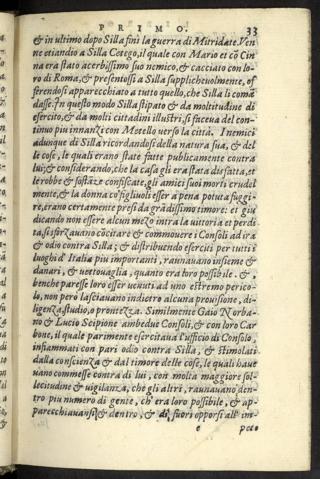 PRIMO. 33
& in ultimo dopo Silla finì la guerra di Mitridate. Ven
ne etiandio a Silla Cetego, il quale con Mario et cõ Cin
na era stato acerbissimo suo nemico, & cacciato con lo-
ro di Roma, & presentossi a Silla supplicheuolmente, of
ferendosi apparecchiato a tutto quello, che Silla li comã
dasse. In questo modo Silla stipato & da moltitudine di
esercito, & da molti cittadini illustri, si faceua del con-
tinuo piu innanzi con Metello verso la città. I nemici
adunque di Silla ricordandosi della natura sua, & del
le cose, le quali erano state fatte publicamente contra
lui; & considerando, che la casa gli era stata disfatta, et
le robbe & sostãze confiscate, gli amici suoi morti crudel
mente, & la donna co' figliuoli esser a pena potuta fuggi-
re, erano certamente presi da grãdissimo timore; et giu
dicando non essere alcun mezo intra la uittoria et perdi
ta, si sforzauano cõcitare & commouere i Consoli ad ira
& odio contra Silla; & distribuendo eserciti per tutti i
luoghi d' Italia piu importanti, raunauano insieme &
danari, & uettouaglia, quanto era loro possibile. &,
benche paresse loro esser uenuti ad uno estremo perico-
lo, non però lasciauano indietro alcuna prouisione, di-
ligenza, studio, o prontezza. Similmente Gaio Norba-
no & Lucio Scipione ambedue Consoli, & con loro Car
bone, il quale parimente esercitaua l'ufficio di Consolo,
infiammati con pari odio contra Silla, & stimolati
dalla conscienza & dal timore delle cose, le quali haue
uano commesse contra di lui, con molta maggiore sol-
lecitudine & vigilanza, che gli altri, raunauano den-
tro piu numero di gente, ch' era loro possibile, & ap-
parecchiauansi & dentro, & di fuori opporsi all' im-
e peto